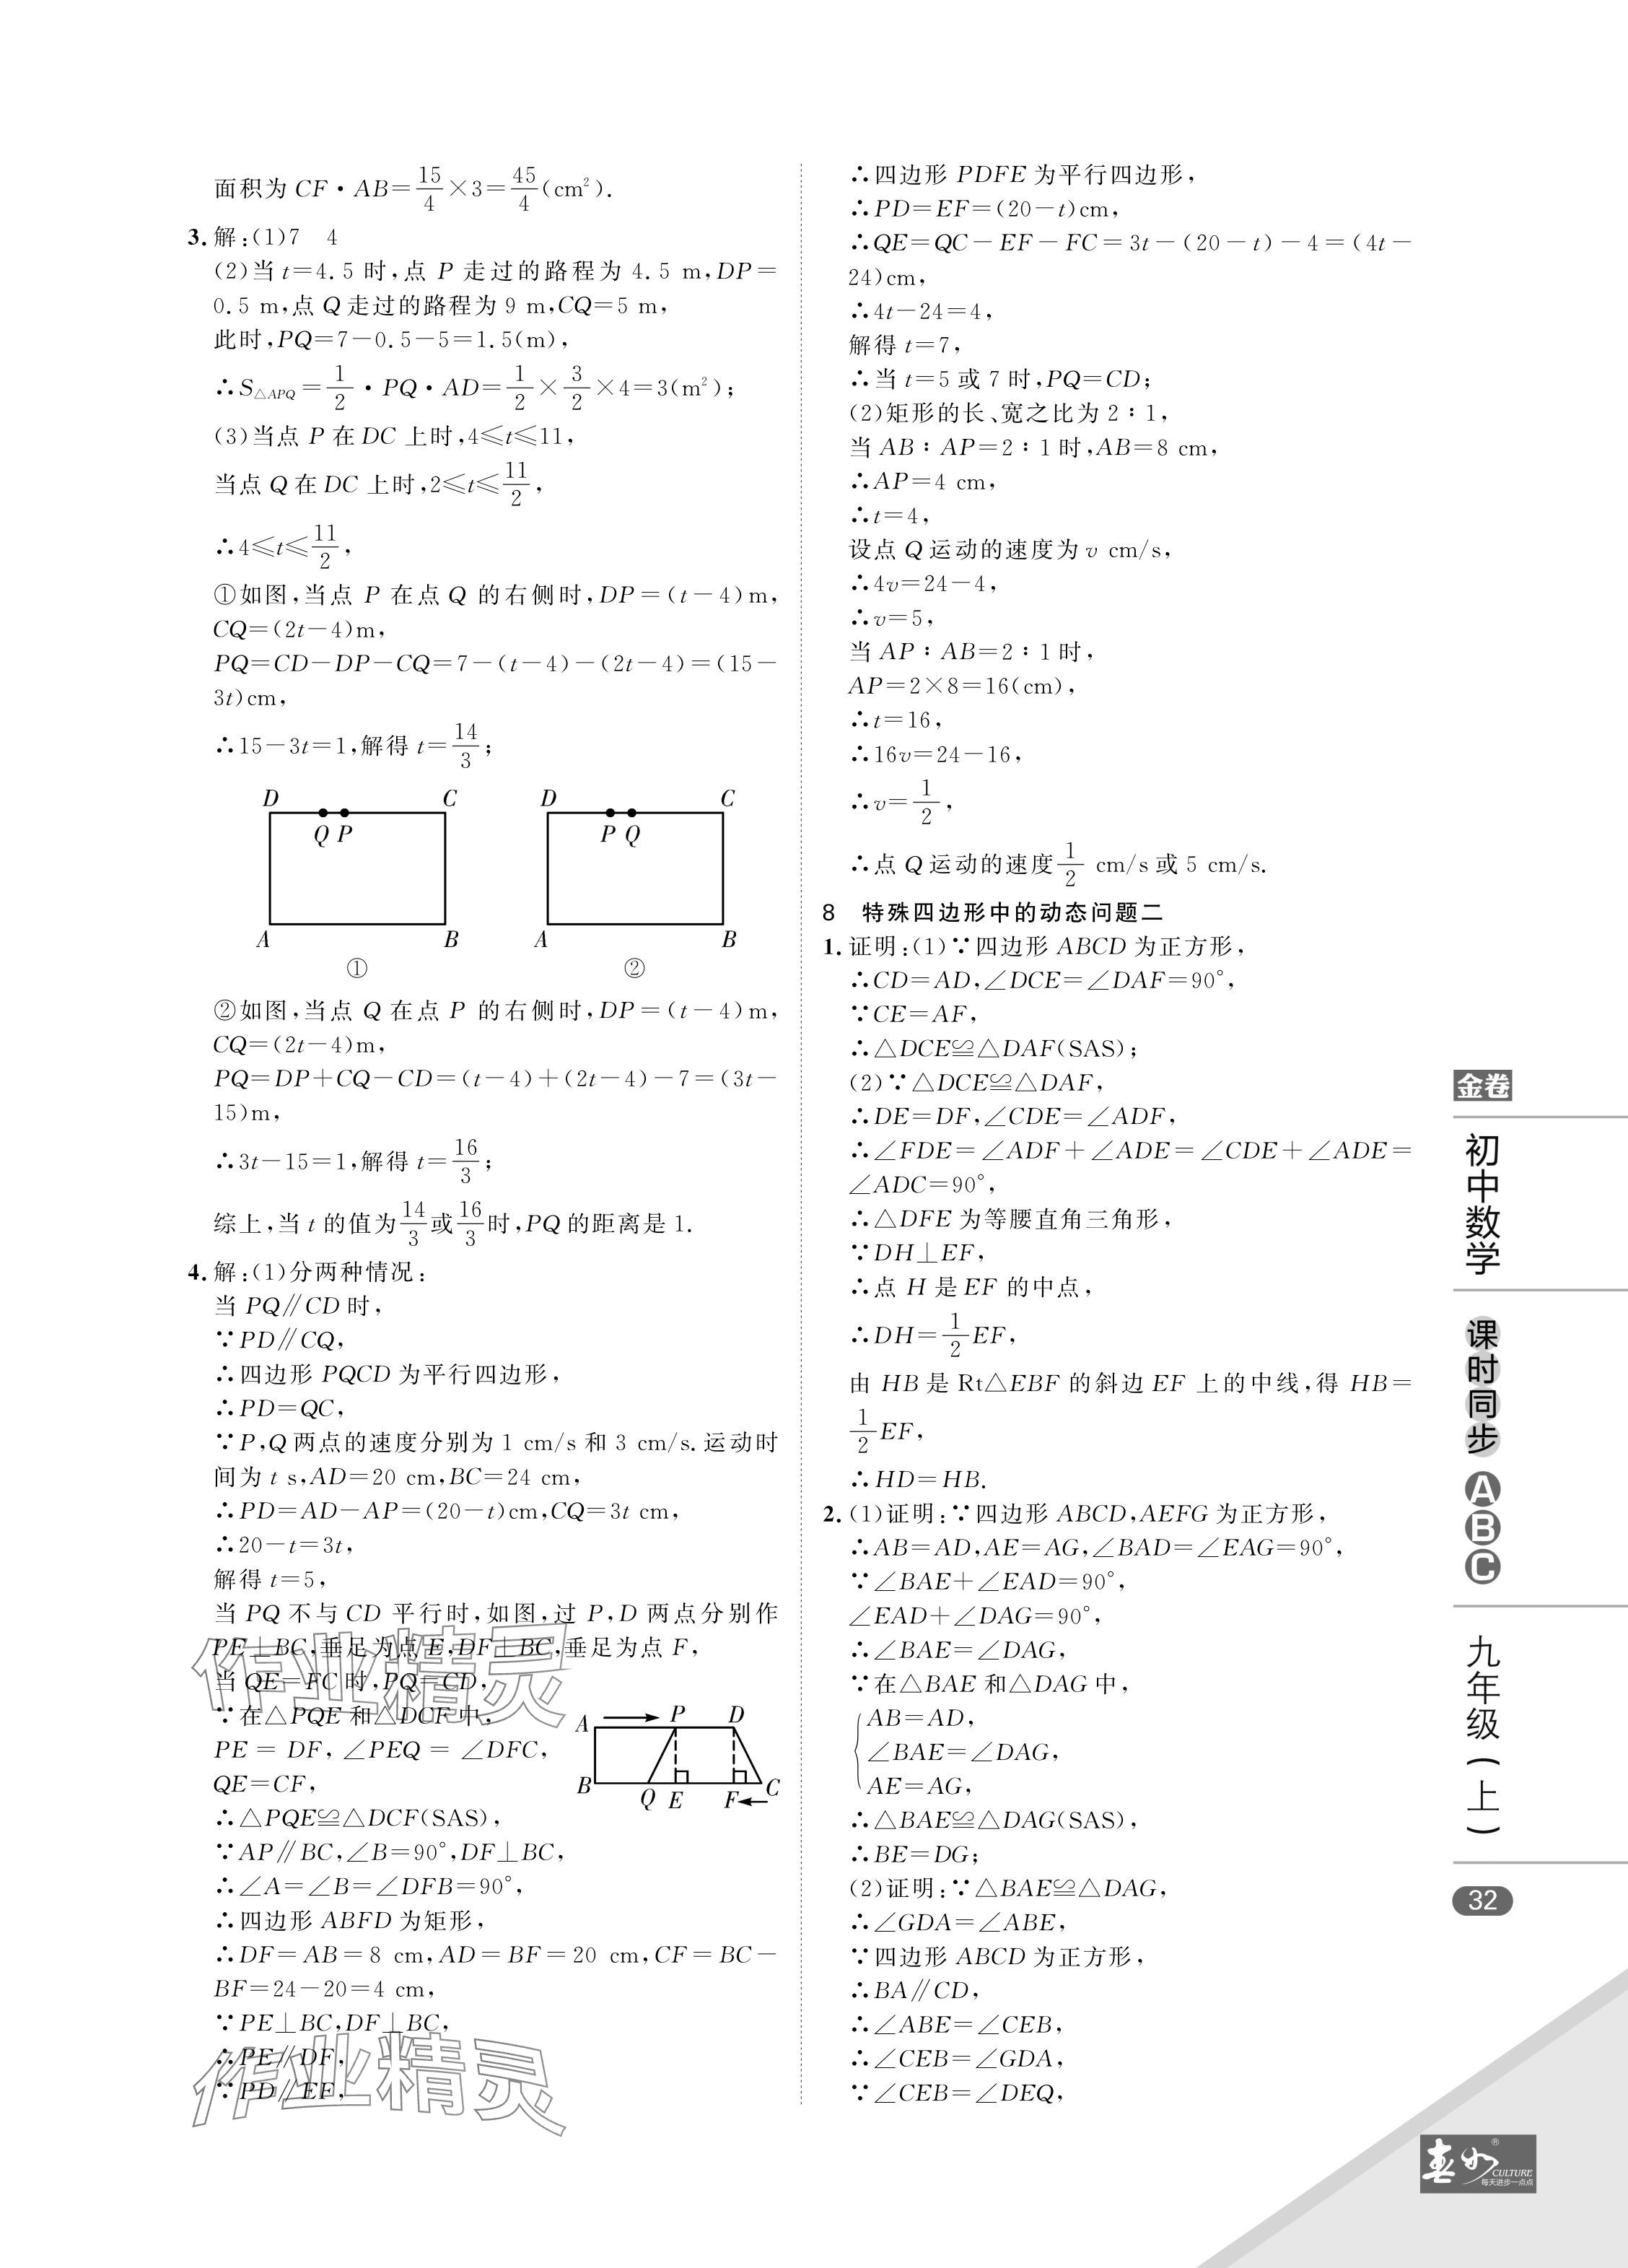 面积为 CF·AB=15/4×3=45/4(cm²).
3. 解:(1)7　4
(2)当 t=4.5 时,点 P 走过的路程为 4.5 m,DP=
0.5 m,点 Q 走过的路程为 9 m,CQ=5 m,
此时,PQ=7-0.5-5=1.5(m),
∴S△APQ=1/2·PQ·AD=1/2×3/2×4=3(m²);
(3)当点 P 在 DC 上时,4≤t≤11,
当点 Q 在 DC 上时,2≤t≤11/2,
∴4≤t≤11/2,
①如图,当点 P 在点 Q 的右侧时,DP=(t-4)m,
CQ=(2t-4)m,
PQ=CD-DP-CQ=7-(t-4)-(2t-4)=(15-
3t)cm,
∴15-3t=1,解得 t=14/3;
D C D C
Q P P Q
A B A B
① ②
②如图,当点 Q 在点 P 的右侧时,DP=(t-4)m,
CQ=(2t-4)m,
PQ=DP+CQ-CD=(t-4)+(2t-4)-7=(3t-
15)m,
∴3t-15=1,解得 t=16/3;
综上,当 t 的值为14/3或16/3时,PQ 的距离是 1.
4. 解:(1)分两种情况:
当 PQ∥CD 时,
∵PD∥CQ,
∴四边形 PQCD 为平行四边形,
∴PD=QC,
∵P,Q 两点的速度分别为 1 cm/s 和 3 cm/s.运动时
间为 t s,AD=20 cm,BC=24 cm,
∴PD=AD-AP=(20-t)cm,CQ=3t cm,
∴20-t=3t,
解得 t=5,
当 PQ 不与 CD 平行时,如图,过 P,D 两点分别作
PE⊥BC,垂足为点 E,DF⊥BC,垂足为点 F,
当 QE=FC 时,PQ=CD,
∵在△PQE 和△DCF 中,
PE=DF,∠PEQ=∠DFC,
QE=CF,
A P D
B Q E F C
∴△PQE≌△DCF(SAS),
∵AP∥BC,∠B=90°,DF⊥BC,
∴∠A=∠B=∠DFB=90°,
∴四边形 ABFD 为矩形,
∴DF=AB=8 cm,AD=BF=20 cm,CF=BC-
BF=24-20=4 cm,
∵PE⊥BC,DF⊥BC,
∴PE∥DF,
∵PD∥EF,
∴四边形 PDFE 为平行四边形,
∴PD=EF=(20-t)cm,
∴QE=QC-EF-FC=3t-(20-t)-4=(4t-
24)cm,
∴4t-24=4,
解得 t=7,
∴当 t=5 或 7 时,PQ=CD;
(2)矩形的长、宽之比为 2∶1,
当 AB∶AP=2∶1 时,AB=8 cm,
∴AP=4 cm,
∴t=4,
设点 Q 运动的速度为 v cm/s,
∴4v=24-4,
∴v=5,
当 AP∶AB=2∶1 时,
AP=2×8=16(cm),
∴t=16,
∴16v=24-16,
∴v=1/2,
∴点 Q 运动的速度1/2 cm/s 或 5 cm/s.
8　特殊四边形中的动态问题二
1. 证明:(1)∵四边形 ABCD 为正方形,
∴CD=AD,∠DCE=∠DAF=90°,
∵CE=AF,
∴△DCE≌△DAF(SAS);
(2)∵△DCE≌△DAF,
∴DE=DF,∠CDE=∠ADF,
∴∠FDE=∠ADF+∠ADE=∠CDE+∠ADE=
∠ADC=90°,
∴△DFE 为等腰直角三角形,
∵DH⊥EF,
∴点 H 是 EF 的中点,
∴DH=1/2EF,
由 HB 是 Rt△EBF 的斜边 EF 上的中线,得 HB=
1/2EF,
∴HD=HB.
2. (1)证明:∵四边形 ABCD,AEFG 为正方形,
∴AB=AD,AE=AG,∠BAD=∠EAG=90°,
∵∠BAE+∠EAD=90°,
∠EAD+∠DAG=90°,
∴∠BAE=∠DAG,
∵在△BAE 和△DAG 中,
AB=AD,
∠BAE=∠DAG,
AE=AG,
∴△BAE≌△DAG(SAS),
∴BE=DG;
(2)证明:∵△BAE≌△DAG,
∴∠GDA=∠ABE,
∵四边形 ABCD 为正方形,
∴BA∥CD,
∴∠ABE=∠CEB,
∴∠CEB=∠GDA,
∵∠CEB=∠DEQ,
金卷
初中数学
课时同步
ABC
九年级(上)
32
作业精灵
作业精灵
春如®
CULTURE
每天进步一点点